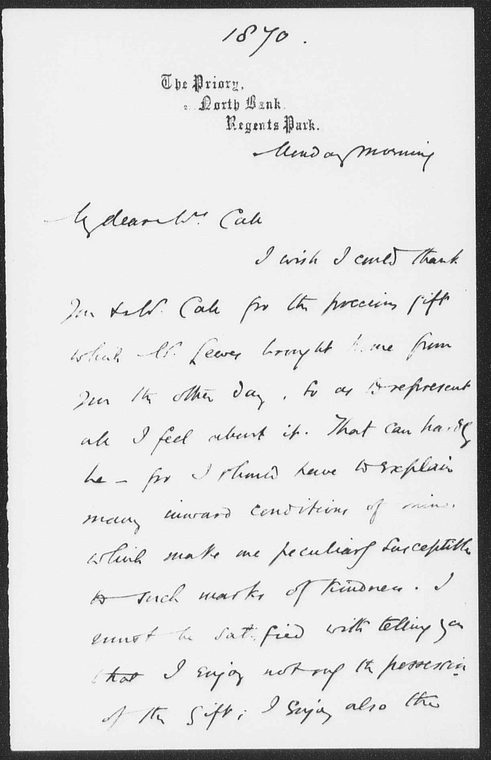 1870.
The Priory,
North Bank
Regents Park.
Monday morning
My dear Mrs Cole
I wish I could thank
you & Mr. Cole for the precious gift
which Mr. Lewes brought home from
you the other day, so as to represent
all I feel about it. That can hardly
be — for I should have to explain
many inward conditions of mine.
which make me peculiarly susceptible
to such marks of kindness. I
must be satisfied with telling you
that I enjoy not only the possession
of the gift; I enjoy also the